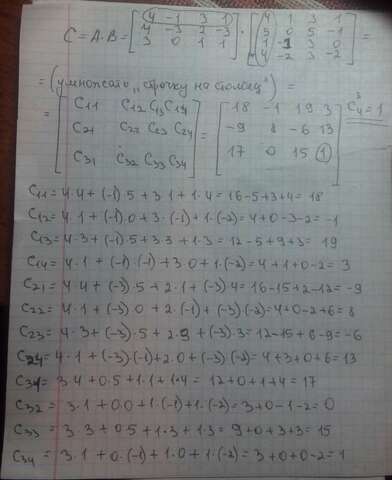 C = A·B = [4 -1 3 1] · [4 1 3 1]
[4 -3 2 -3] [5 0 5 -1]
[3 0 1 1] [1 -1 3 0]
[4 -2 3 -2]
= (умножать „строчку на столбец") =
= [C11 C12 C13 C14] = [18 -1 19 3] C₄³=1
[C21 C22 C23 C24] [-9 8 -6 13]
[C31 C32 C33 C34] [17 0 15 1]
C11 = 4·4 + (-1)·5 + 3·1 + 1·4 = 16-5+3+4 = 18
C12 = 4·1 + (-1)·0 + 3·(-1) + 1·(-2) = 4+0-3-2 = -1
C13 = 4·3 + (-1)·5 + 3·3 + 1·3 = 12-5+9+3 = 19
C14 = 4·1 + (-1)·(-1) + 3·0 + 1·(-2) = 4+1+0-2 = 3
C21 = 4·4 + (-3)·5 + 2·1 + (-3)·4 = 16-15+2-12 = -9
C22 = 4·1 + (-3)·0 + 2·(-1) + (-3)·(-2) = 4+0-2+6 = 8
C23 = 4·3 + (-3)·5 + 2·3 + (-3)·3 = 12-15+6-9 = -6
C24 = 4·1 + (-3)·(-1) + 2·0 + (-3)·(-2) = 4+3+0+6 = 13
C31 = 3·4 + 0·5 + 1·1 + 1·4 = 12+0+1+4 = 17
C32 = 3·1 + 0·0 + 1·(-1) + 1·(-2) = 3+0-1-2 = 0
C33 = 3·3 + 0·5 + 1·3 + 1·3 = 9+0+3+3 = 15
C34 = 3·1 + 0·(-1) + 1·0 + 1·(-2) = 3+0+0-2 = 1